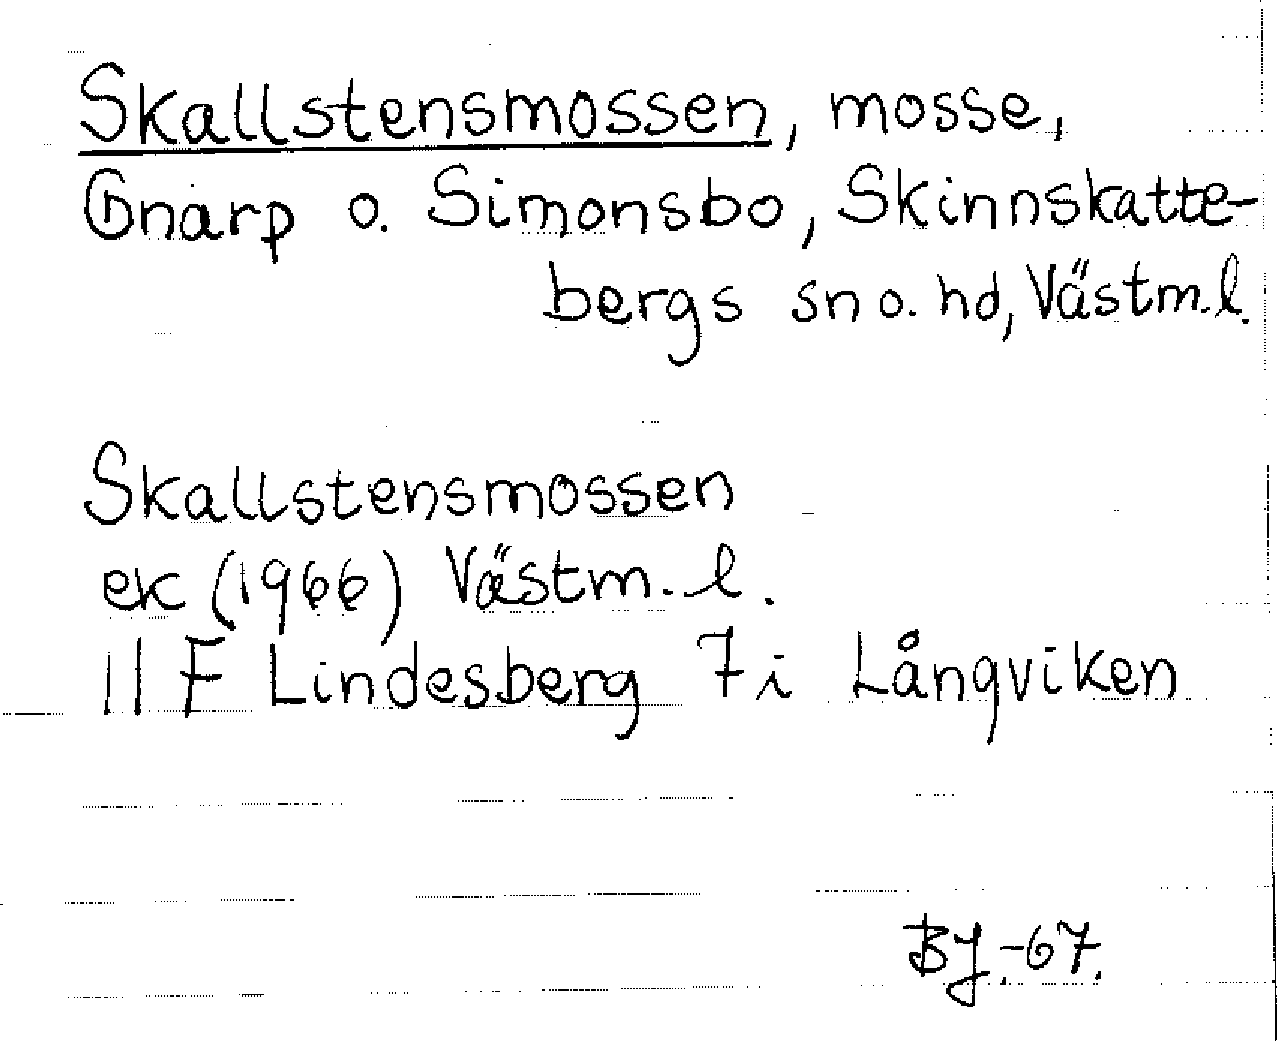 Skallstensmossen, mosse,
Gnarp o. Simonsbo, Skinnskatte-
bergs sn o. hd, Västm.l.
Skallstensmossen
ek (1966) Västm.l.
11 F Lindesberg 7i Långviken
BJ.-67.